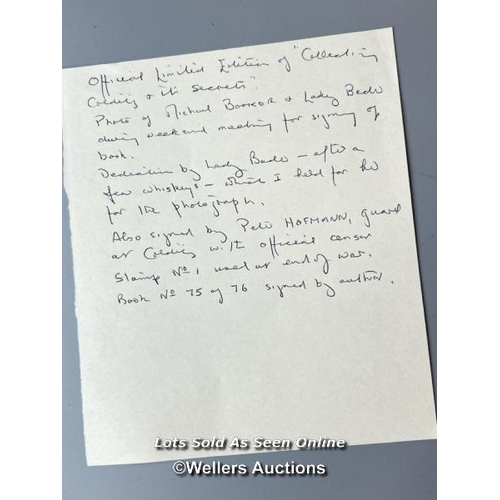 Official Limited Edition of "Collecting
Colditz & its Secrets".
Photo of Michael Booker & Lady Bader
during weekend meeting for signing of
book.
Dedication by Lady Bader – after a
few whiskeys – which I held for her
for the photograph.
Also signed by Pete HOFMANN, guard
at Colditz with official censor
Stamp Nº 1 used at end of war.
Book Nº 75 of 76 signed by author.
Lots Sold As Seen Online
©Wellers Auctions